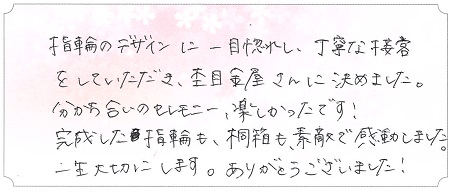 指輪のデザインに一目惚れし、丁寧な接客
をしていただき、杢目金屋さんに決めました。
分かち合いのセレモニー、楽しかったです!
完成した指輪も、桐箱も、素敵で感動しました。
一生大切にします。ありがとうございました!